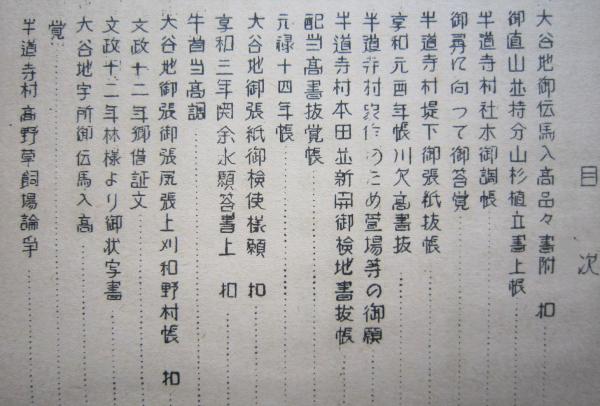 目次
大谷地御伝馬入高品々書附 扣
御直山並持分山杉植立書上帳
半道寺村社木御調帳
御尋に向つて御答覚
半道寺村堤下御張紙抜帳
享和元酉年帳川欠高書抜
半道寺村 のため萱場等の御願
半道寺村本田並新開御検地書抜帳
配当高書抜覚帳
元禄十四年帳
大谷地御張紙御検使様願 扣
享和三年関余水願答書上 扣
牛首当高調
大谷地御張御張尻張上刈和野村帳 扣
文政十二年郷借証文
文政十二年林様より御状写書
大谷地字所御伝馬入高
覚
半道寺村高野草飼場論争